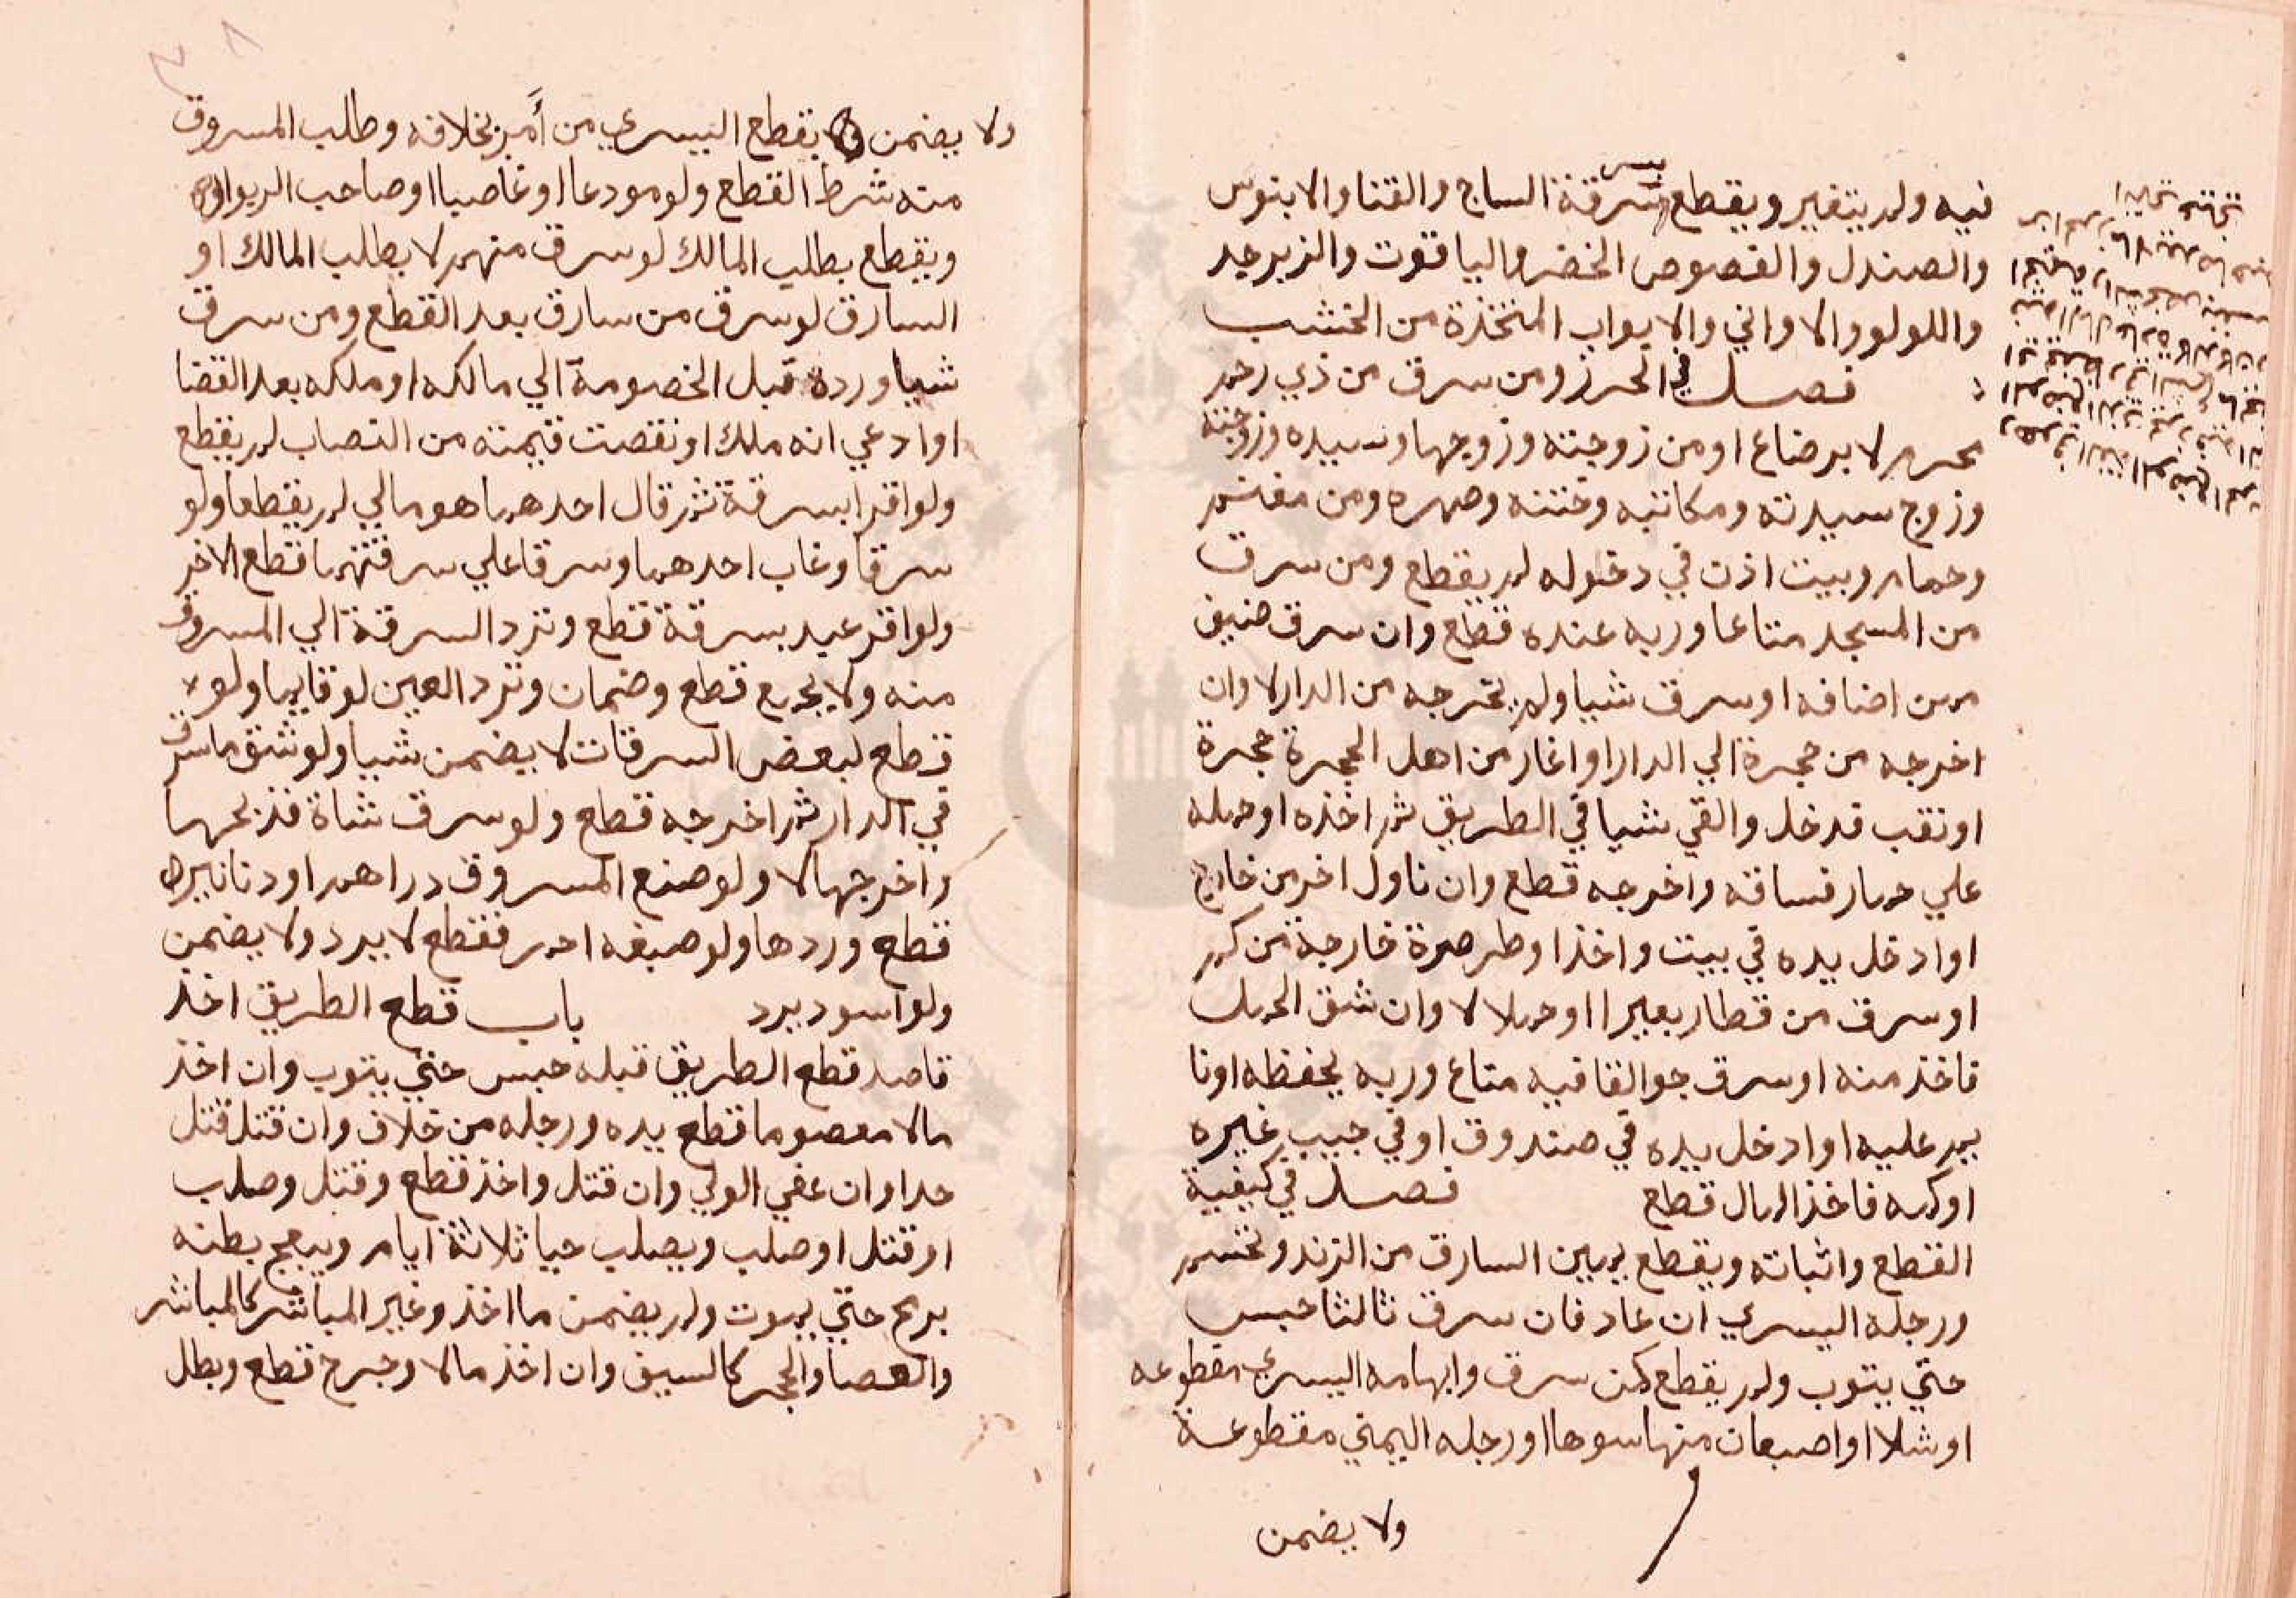 فيه ولم يتغير ويقطع بسرقة الساج والقنا والابنوس
والصندل والفصوص الخضر والياقوت والزبرجد
واللولو والاواني والابواب المتخذة من الخشب
فصل في الحرز ومن سرق من ذي رحم
محرم لا برضاع او من زوجته وزوجها وسيده وزوجته
وزوج سيدته ومكاتبه وختنه وصهره ومن مغنم
وحمام وبيت اذن في دخوله لم يقطع ومن سرق
من المسجد متاعا وربه عنده قطع وان سرق ضيف
ممن اضافه او سرق شيا ولم يخرجه من الدار لا وان
اخرجه من حجرة الي الدار او اغار من اهل الحجرة حجرة
او نقب فدخل والقي شيا في الطريق ثم اخذه او حمله
علي حمار فساقه واخرجه قطع وان ناول اخر من خارج
او ادخل يده في بيت واخذ او طر صرة خارجة من كم
او سرق من قطار بعيرا او حملا لا وان شق الحمل
فاخذ منه او سرق جوالقا فيه متاع وربه يحفظه او نا
يم عليه او ادخل يده في صندوق او في جيب غيره
او كمه فاخذ المال قطع فصل في كيفية
القطع واثباته ويقطع يمين السارق من الزند وتحسم
ورجله اليسري ان عاد فان سرق ثالثا حبس
حتي يتوب ولم يقطع كمن سرق وابهامه اليسري مقطوعه
او شلا او اصبعان منها سوها او رجله اليمني مقطوعة
ولا يضمن
ولا يضمن بقطع اليسري من أمر بخلافه وطلب المسروق
منه شرط القطع ولو مودعا او غاصبا او صاحب الربوا
ويقطع بطلب المالك لو سرق منهم لا بطلب المالك او
السارق لو سرق من سارق بعد القطع ومن سرق
شيا ورده قبل الخصومة الي مالكه او ملكه بعد القضا
او ادعي انه ملك او نقصت قيمته من النصاب لم يقطع
ولو اقرا بسرقة ثم قال احدهما هو مالي لم يقطعا ولو
سرقا وغاب احدهما وسرقا علي سرقتهما قطع الاخر
ولو اقر عبد بسرقة قطع وترد السرقة الي المسروق
منه ولا يجمع قطع وضمان وترد العين لو قايما ولو
قطع لبعض السرقات لا يضمن شيا ولو شق ما سرق
في الدار ثم اخرجه قطع ولو سرق شاة فذبحها
واخرجها لا ولو صنع المسروق دراهم او دنانير
قطع وردها ولو صبغه احمر فقطع لا يرد ولا يضمن
ولو اسود يرد باب قطع الطريق اخذ
قاصد قطع الطريق قبله حبس حتي يتوب وان اخذ
مالا معصوما قطع يده ورجله من خلاف وان قتل قتل
حدا وان عفي الولي وان قتل واخذ قطع وقتل وصلب
او قتل او صلب ويصلب حيا ثلاثة ايام ويبعج بطنه
برمح حتي يموت ولم يضمن ما اخذ وغير المباشر كالمباشر
والعصا والحجر كالسيف وان اخذ مالا وجرح قطع وبطل